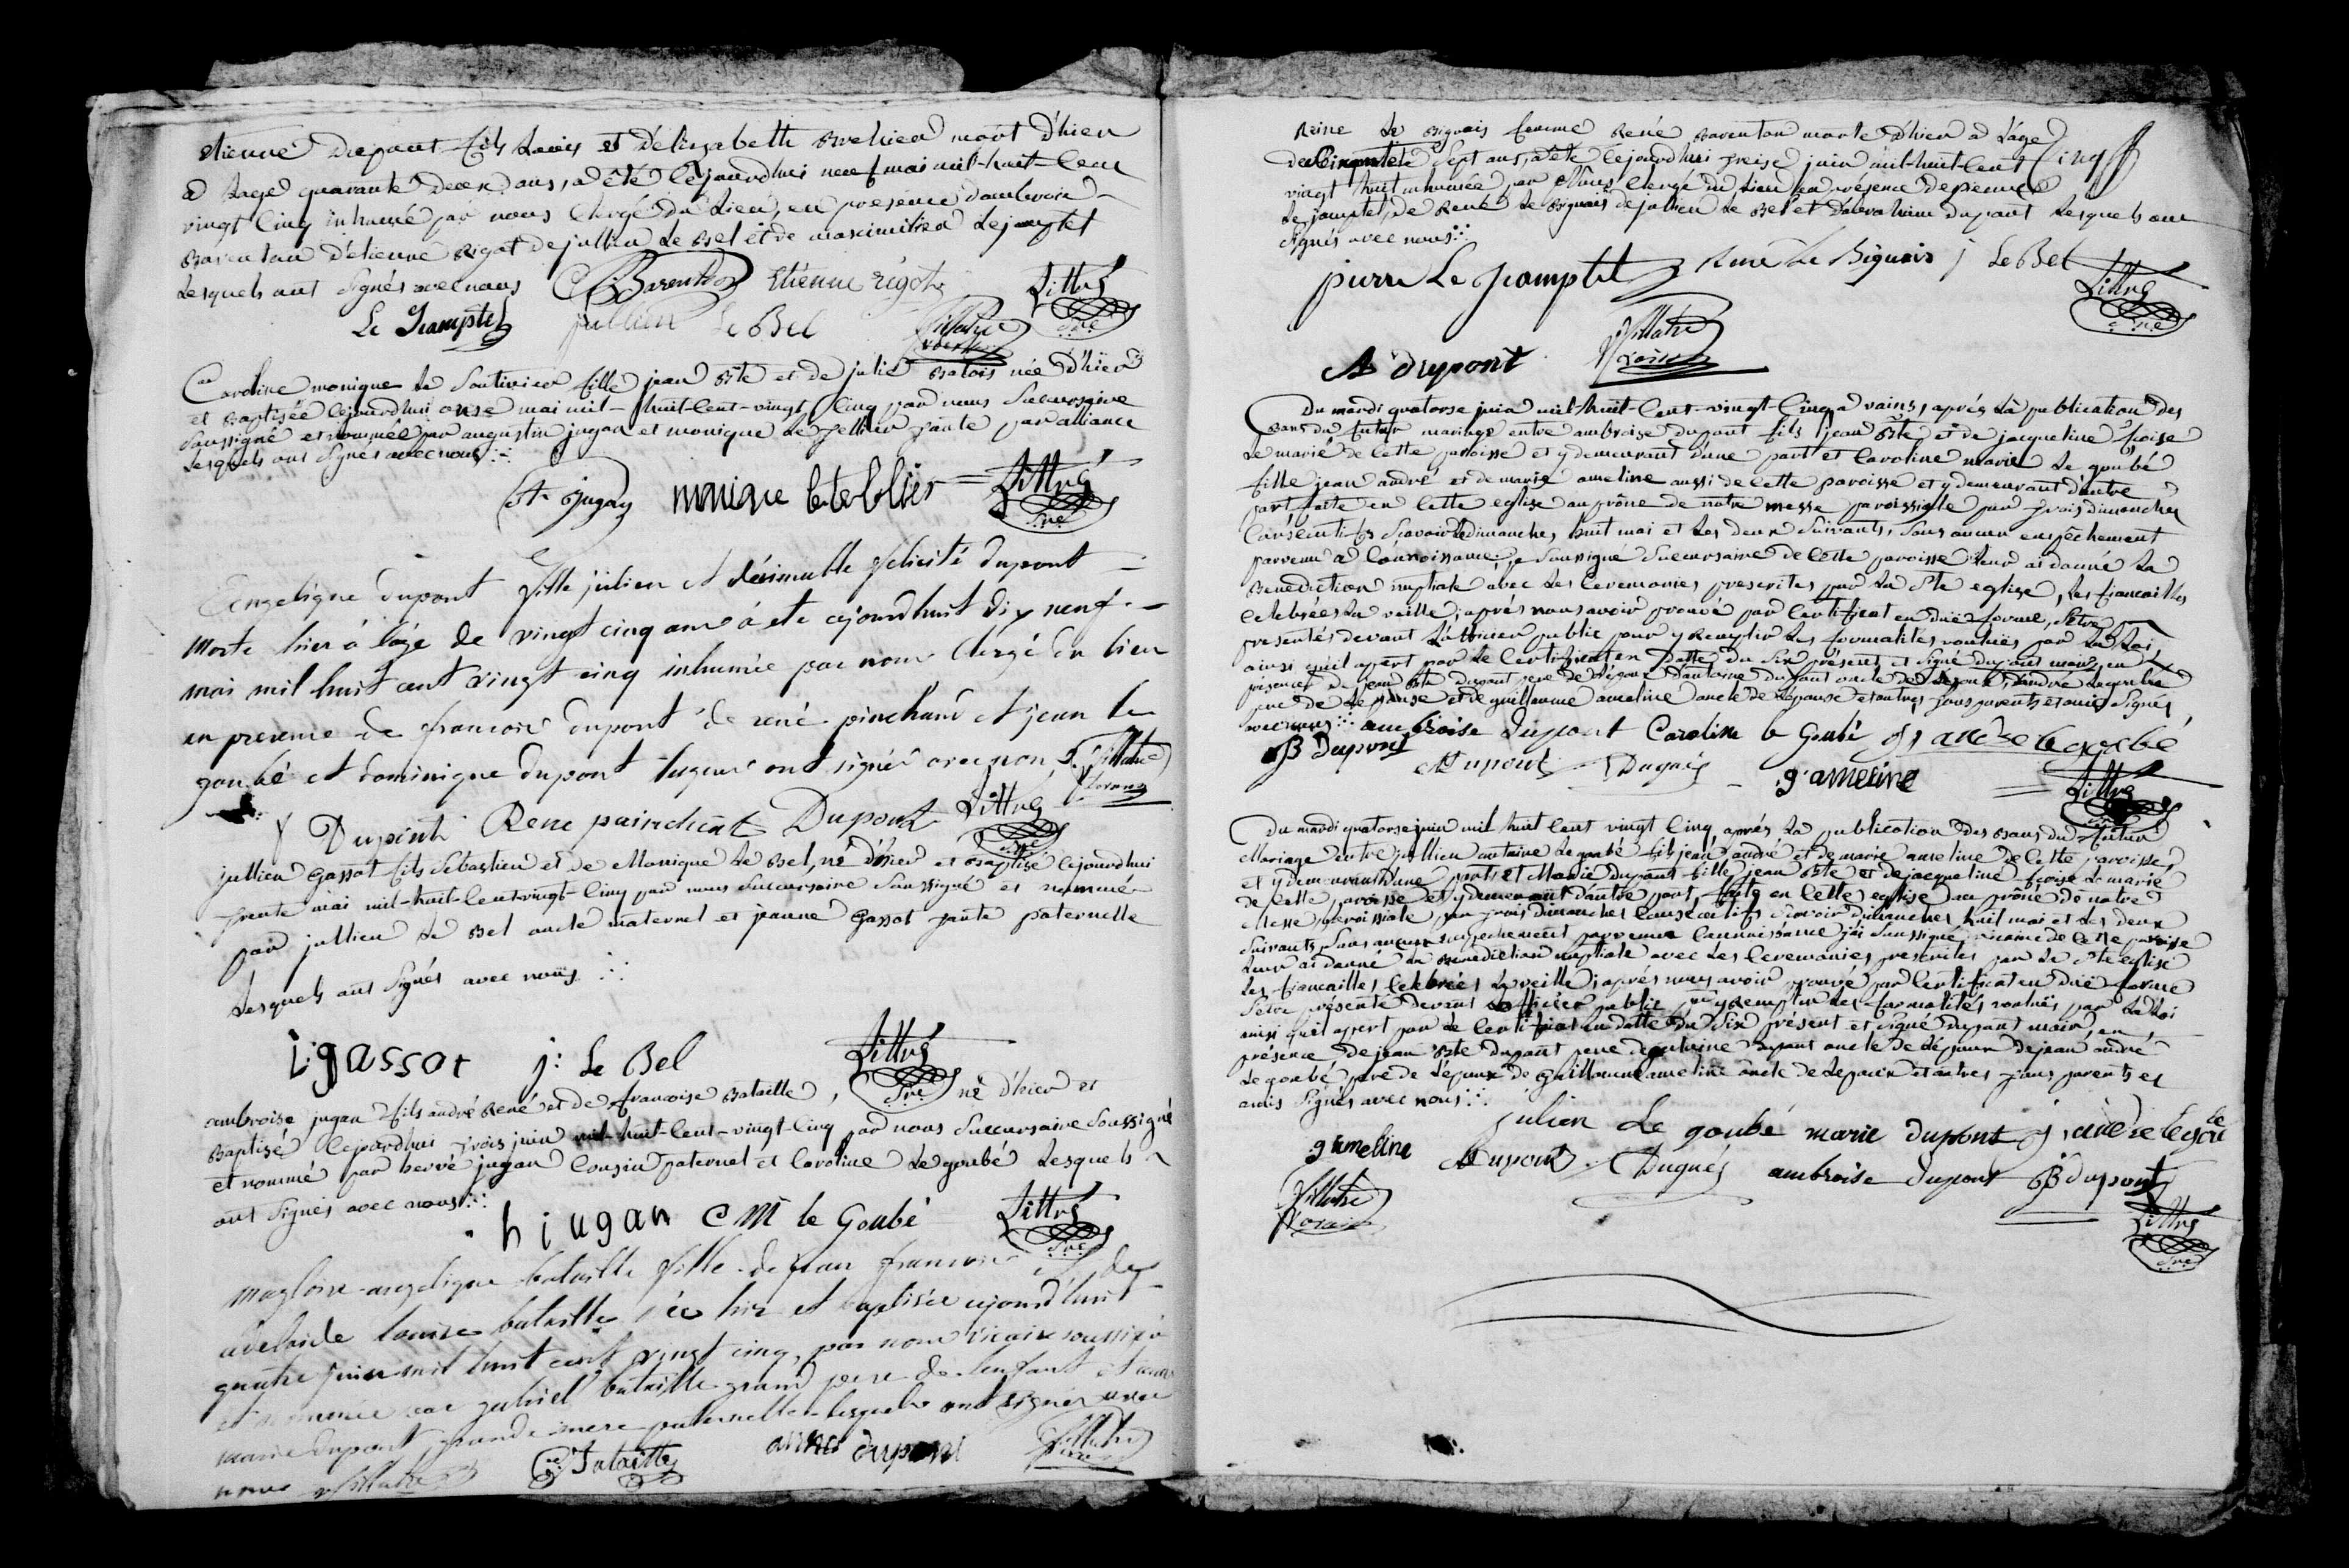 etienne dupont fils Louis et d'elizabeth mort d'hier
à l'age quarante deux ans, a été cejourdhui neuf mai mil-huit-cent
vingt cinq inhumé par nous Clergé du Lieu, en presence d'ambroise
Barenton d'étienne Rigot de jullien Le Bel et de maximilien Lejamptel
Lesquels ont Signés avec nous Barenton Etienne rigot Littré
Le Jamptel julien Le Bel
Caroline monique Le fille jean Bte et de julie Batois née d'hier
et Baptisée cejourdhui onze mai mil-huit-cent-vingt cinq par nous Succursaire
Soussigné et nommée par augustin jugan et monique Le tellier tante par alliance
Lesquels ont Signés avec nous
A. Jugan monique le tellier Littré
Sre
Angelique dupont fille julien et felicité dupont
morte hier à l'age de vingt cinq ans a été cejourdhuit dix neuf
mai mil huit cent vingt cinq inhumée par nous Clergé du lieu
en presence de francois dupont de rené pinchard et jean le
goubé et dominique dupont lequel ont signés avec nous
f Dupont Rene Dupont Littré
jullien Gassot fils Sebastien et de Monique Le Bel, né d'hier et Baptisé cejourdhui
trente mai mil-huit-cent-vingt-cinq par nous Succursaire Soussigné et nommé
par jullien Le Bel oncle maternel et jeanne Gassot tante paternelle
Lesquels ont Signés avec nous
j. gassot j: Le Bel Littré
Sre
ambroise jugan fils andré René et de francoise Bataille, né d'hier et
Baptisé cejourdhui trois juin mil-huit-cent-vingt-cinq par nous Succursaire Soussigné
et nommé par hervé jugan Cousin paternel et Caroline Le goubé Lesquels
ont Signés avec nous
h jugan C M le Goubé Littré
Sre
magloire angelique bataille fille de jean francois et de
adelaide louise bataille née hier et baptisée cejourd'huit
quatre juin mil huit cent vingt cinq, par nous vicaire soussigné
et nommée par gabriel bataille grand pere de l'enfant et anne
marie dupont grande mere paternelle lesquels ont signés avec
nous Bataille anne dupont
Reine Le Biguais femme René Barenton morte d'hier à l'age
de Cinquante Sept ans, a été cejourdhui treize juin mil-huit-cent Cinq
vingt huit inhumée par Nous Clergé du Lieu en présence de pierre
Lejamptel, de René Le Biguais de jullien Le Bel et d'abraham dupont Lesquels ont
Signés avec nous
pierre Le Jamptel René Le Biguais j Le Bel Littré
Sre
A dupont
Du mardi quatorse juin mil-huit-cent-vingt-Cinq à vains, après la publication des
Bans du futur mariage entre ambroise dupont fils jean Bte et de jacqueline fcoise
Le marié de cette paroisse et y demeurant d'une part et Caroline marie Le goubé
fille jean andré et de marie ameline aussi de cette paroisse et y demeurant d'autre
part, faite en cette eglise au prône de notre messe paroissiale par trois dimanches
Consécutifs Scavoir Le dimanche, huit mai et Les deux Suivants, Sans aucun empêchement
parvenu à Connoissance, je Soussigné Succursaire de cette paroisse Leur ai donné La
Benediction nuptiale avec Les Ceremonies prescrites par La Ste eglise, Les fiancailles
Celebrées La veille, après nous avoir prouvé par Certificat en duë forme, S'etre
presentés devant L'officier public pour y Remplir Les formalités voulües par La Loi,
ainsi qu'il apert par le Certificat en Datte du Six présent et Signé dupont maire, en
présence de jean Bte dupont pere de L'époux d'antoine dupont oncle de L'époux, d'andré Legoubé
pere de L'épouse et de guillaume ameline oncle de L'épouse et autres tous parents et amis Signés
avec nous ambroise dupont Caroline le Goubé j andre le goubé
JB Dupont A dupont Dugués g ameline Littré
Du mardi quatorse juin mil huit cent vingt Cinq, après La publication des Bans du futur
Mariage entre jullien antoine Le goubé fils jean andré et de marie ameline de cette paroisse
et y demeurant d'une part, et Marie dupont fille jean Bte et de jacqueline fcoise Le marié
de cette paroisse et y demeurant d'autre part, faite en cette eglise au prône de notre
Messe paroissiale par trois dimanches Consecutifs Scavoir dimanches huit mai et Les deux
Suivants, Sans aucun empechement parvenu à Connoissance je Soussigné vicaire de cette paroisse
Leur ai donné La Benediction nuptiale avec Les Ceremonies prescrites par La Ste eglise
Les fiancailles Celebrées La veille, après nous avoir prouvé par Certificat en duë forme
S'etre présenté devant L'officier public pr y Remplir Les formalités voulües par La Loi
ainsi qu'il apert par Le Certificat en datte du Six présent et Signé dupont maire, en
présence de jean Bte dupont pere d'antoine dupont oncle de L'épouse de jean andré
Le goubé pere de L'époux de guillaume ameline oncle de L'époux et autres tous parents et
amis Signés avec nous
julien Le goubé marie dupont j. andre le goubé
g ameline A dupont Dugués ambroise dupont JB dupont
Littré
Sre